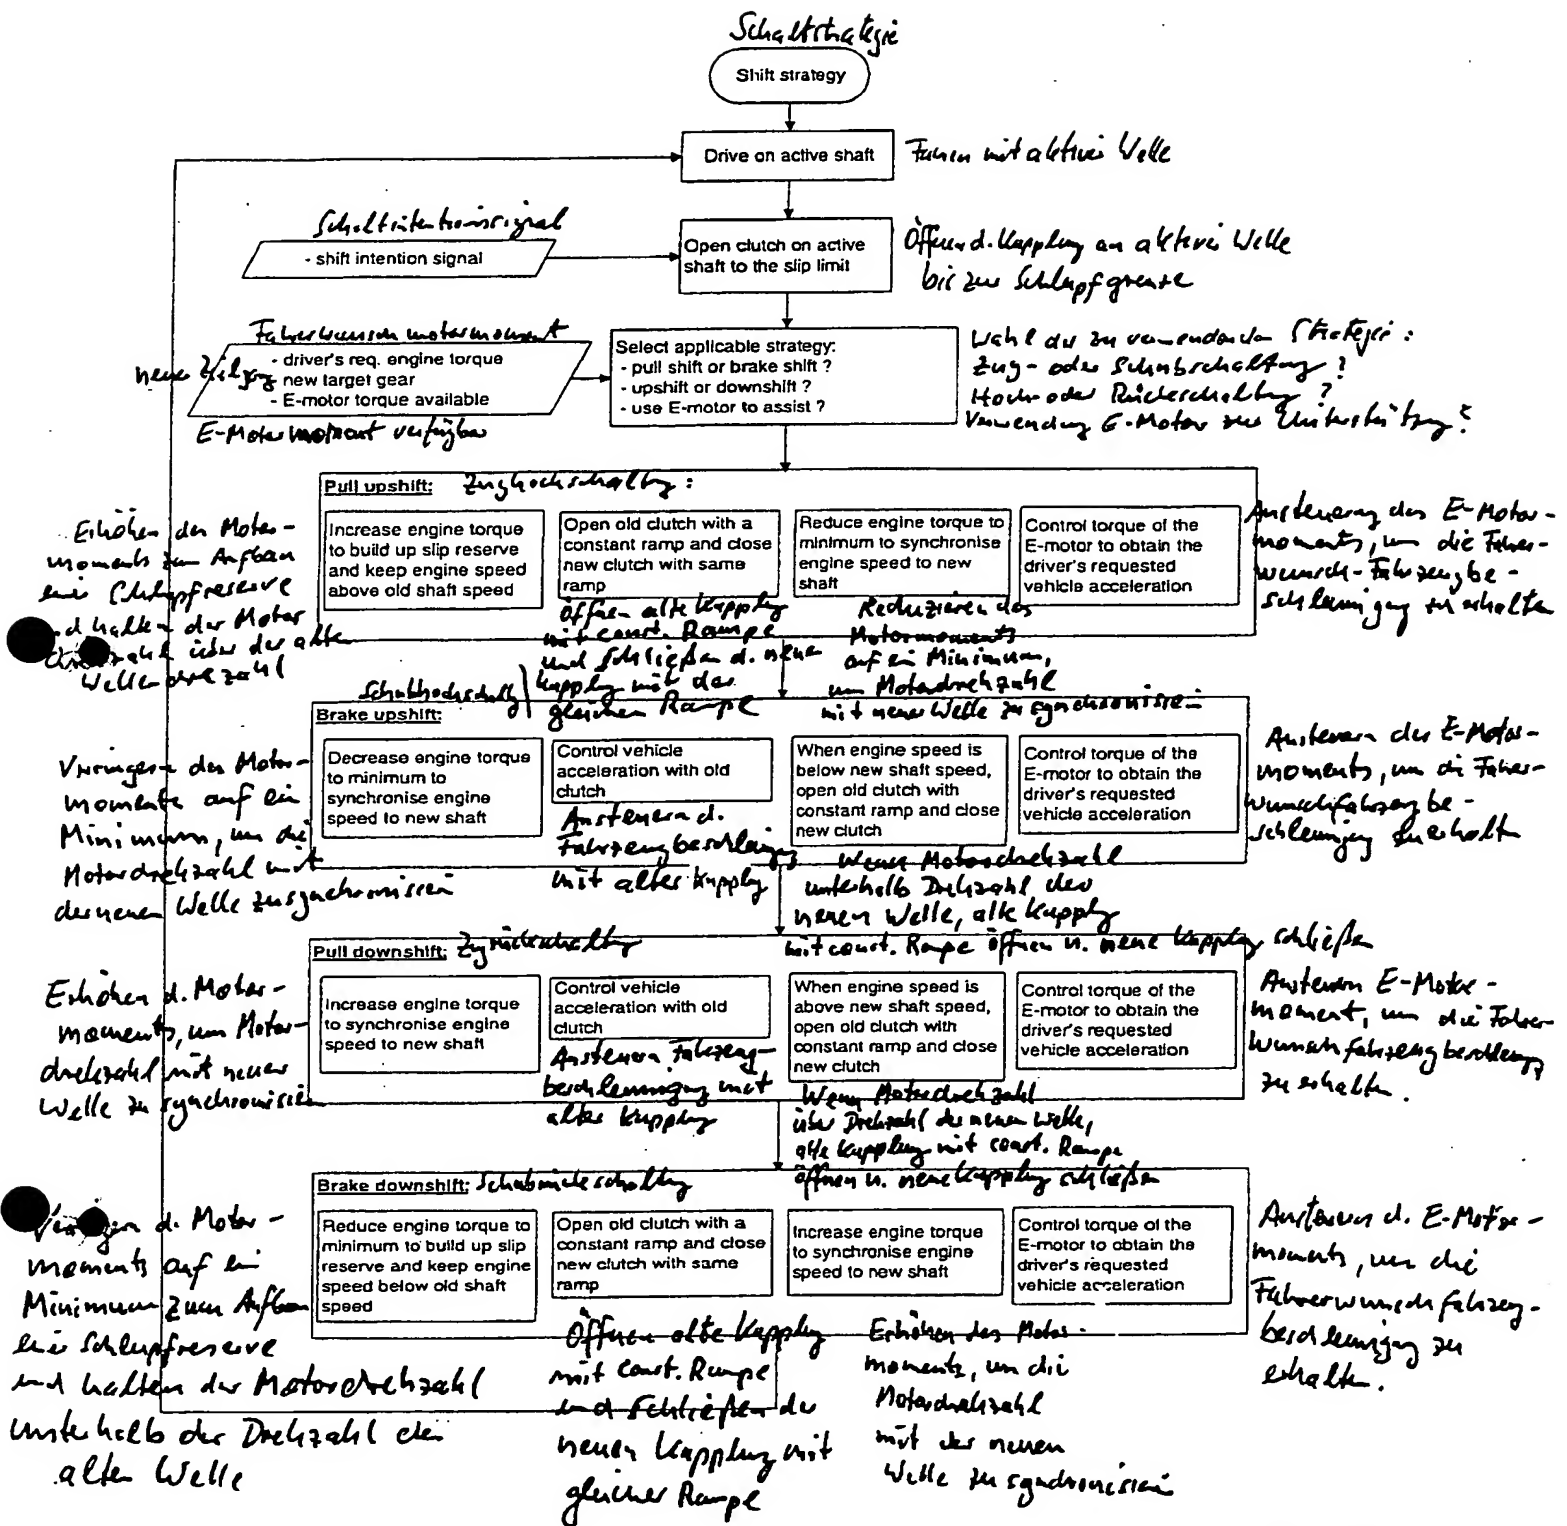 Schaltstrategie
Shift strategy
Drive on active shaft
Fahren mit aktiver Welle
Schaltintentionssignal
- shift intention signal
Open clutch on active
shaft to the slip limit
Öffnen d. Kupplung an aktiver Welle
bis zur Schlupfgrenze
Fahrerwunschmotormoment
- driver's req. engine torque
neuer Zielgang
new target gear
- E-motor torque available
E-Motormoment verfügbar
Select applicable strategy:
- pull shift or brake shift ?
- upshift or downshift ?
- use E-motor to assist ?
Wahl der zu verwendenden Strategie :
Zug- oder Schubschaltung ?
Hoch- oder Rückschaltung ?
Verwendung E-Motor zur Unterstützung ?
Pull upshift:
Zughochschaltung :
Increase engine torque
to build up slip reserve
and keep engine speed
above old shaft speed
Open old clutch with a
constant ramp and close
new clutch with same
ramp
Reduce engine torque to
minimum to synchronise
engine speed to new
shaft
Control torque of the
E-motor to obtain the
driver's requested
vehicle acceleration
Erhöhen des Motor-
moments zum Aufbau
einer Schlupfreserve
und halten der Motor
drehzahl über der alten
Wellendrehzahl
Öffnen alte Kupplung
mit const. Rampe
und Schließen d. neuen
Kupplung mit der
gleichen Rampe
Reduzieren des
Motormoments
auf ein Minimum,
um Motordrehzahl
mit neuer Welle zu synchronisieren
Ansteuerung des E-Motor-
moments, um die Fahrer-
wunsch-Fahrzeugbe-
schleunigung zu erhalten
Schubhochschaltung
Brake upshift:
Decrease engine torque
to minimum to
synchronise engine
speed to new shaft
Control vehicle
acceleration with old
clutch
When engine speed is
below new shaft speed,
open old clutch with
constant ramp and close
new clutch
Control torque of the
E-motor to obtain the
driver's requested
vehicle acceleration
Verringern des Motor-
moments auf ein
Minimum, um die
Motordrehzahl mit
der neuen Welle zu synchronisieren
Ansteuern d.
Fahrzeugbeschleunigung
mit alter Kupplung
Wenn Motordrehzahl
unterhalb Drehzahl der
neuen Welle, alte Kupplung
mit const. Rampe öffnen u. neue Kupplung schließen
Ansteuern des E-Motor-
moments, um die Fahrer-
wunschfahrzeugbe-
schleunigung zu erhalten
Pull downshift:
Zugrückschaltung
Increase engine torque
to synchronise engine
speed to new shaft
Control vehicle
acceleration with old
clutch
When engine speed is
above new shaft speed,
open old clutch with
constant ramp and close
new clutch
Control torque of the
E-motor to obtain the
driver's requested
vehicle acceleration
Erhöhen d. Motor-
moments, um Motor-
drehzahl mit neuer
Welle zu synchronisieren
Ansteuern Fahrzeug-
beschleunigung mit
alter Kupplung
Wenn Motordrehzahl
über Drehzahl der neuen Welle,
alte Kupplung mit const. Rampe
öffnen u. neue Kupplung schließen
Ansteuern E-Motor-
moment, um die Fahrer
wunschfahrzeugbeschleunigung
zu erhalten.
Brake downshift:
Schubrückschaltung
Reduce engine torque to
minimum to build up slip
reserve and keep engine
speed below old shaft
speed
Open old clutch with a
constant ramp and close
new clutch with same
ramp
Increase engine torque
to synchronise engine
speed to new shaft
Control torque of the
E-motor to obtain the
driver's requested
vehicle acceleration
d. Motor-
moments auf ein
Minimum zum Aufbau
einer Schlupfreserve
und halten der Motordrehzahl
unterhalb der Drehzahl der
alten Welle
Öffnen alte Kupplung
mit const. Rampe
und Schließen der
neuen Kupplung mit
gleicher Rampe
Erhöhen des Motor-
moments, um die
Motordrehzahl
mit der neuen
Welle zu synchronisieren
Ansteuern d. E-Motor-
moments, um die
Fahrerwunschfahrzeug-
beschleunigung zu
erhalten.